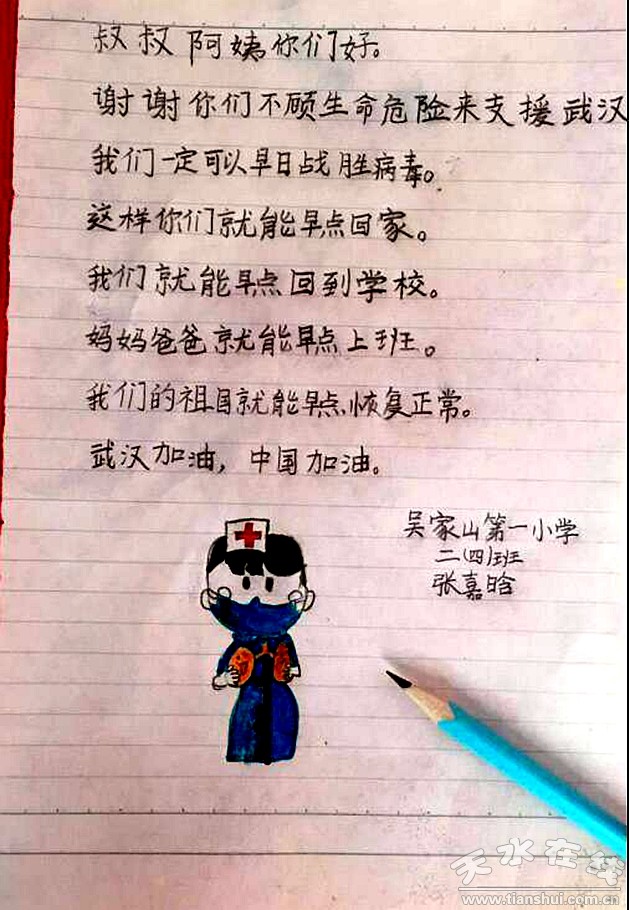 叔叔阿姨你们好。
谢谢你们不顾生命危险来支援武汉
我们一定可以早日战胜病毒。
这样你们就能早点回家。
我们就能早点回到学校。
妈妈爸爸就能早点上班。
我们的祖国就能早点恢复正常。
武汉加油，中国加油。
吴家山第一小学
二（四）班
张嘉晗
天水在线
www.tianshui.com.cn